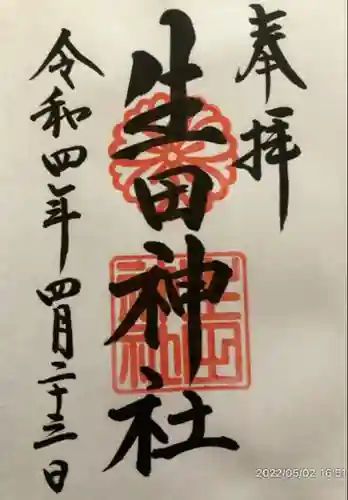 奉拝
生田神社
令和四年四月二十三日
生田神社
2022/05/02 16:51